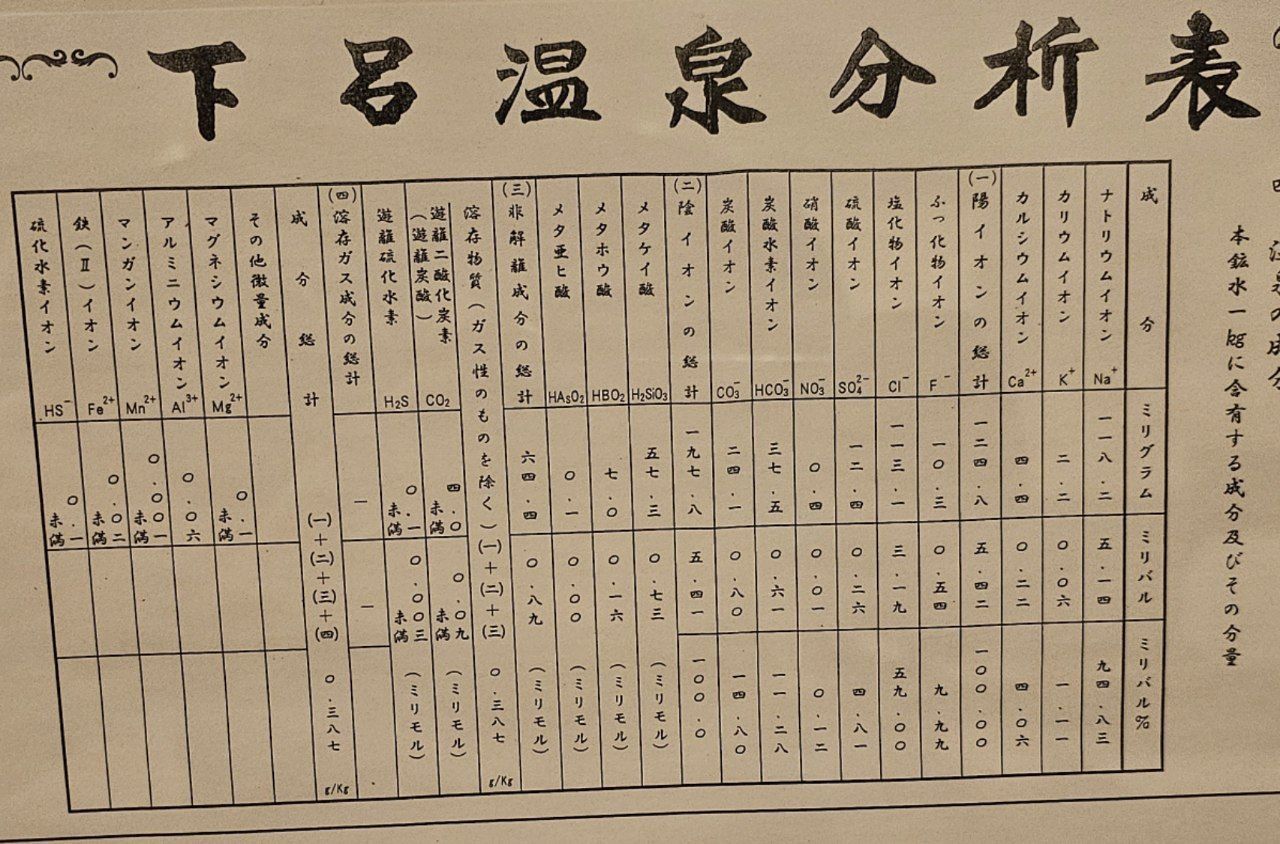 下呂温泉分析表
本鉱水一kgに含有する成分及びその分量
成分 ミリグラム ミリバル ミリバル%
ナトリウムイオン Na⁺ 一一八.二 五.一四 九四.八三
カリウムイオン K⁺ 二.二 〇.〇六 一.一一
カルシウムイオン Ca²⁺ 四.四 〇.二二 四.〇六
(一)陽イオンの総計 一二四.八 五.四二 一〇〇.〇〇
ふっ化物イオン F⁻ 一〇.三 〇.五四 九.九九
塩化物イオン Cl⁻ 一一三.一 三.一九 五九.〇〇
硫酸イオン SO₄²⁻ 一二.四 〇.二六 四.八一
硝酸イオン NO₃⁻ 〇.四 〇.〇一 〇.一二
炭酸水素イオン HCO₃⁻ 三七.五 〇.六一 一一.二八
炭酸イオン CO₃⁻ 二四.一 〇.八〇 一四.八〇
(二)陰イオンの総計 一九七.八 五.四一 一〇〇.〇
メタケイ酸 H₂SiO₃ 五七.三 〇.七三 (ミリモル)
メタホウ酸 HBO₂ 七.〇 〇.一六 (ミリモル)
メタ亜ヒ酸 HAsO₂ 〇.一 〇.〇〇 (ミリモル)
(三)非解離成分の総計 六四.四 〇.八九 (ミリモル)
溶存物質(ガス性のものを除く)(一)+(二)+(三) 〇.三八七 g/Kg
遊離二酸化炭素(遊離炭酸) CO₂ 四.〇未満 〇.〇九未満 (ミリモル)
遊離硫化水素 H₂S 〇.一未満 〇.〇〇三未満 (ミリモル)
(四)溶存ガス成分の総計 — —
成分総計 (一)+(二)+(三)+(四) 〇.三八七 g/Kg
その他微量成分
マグネシウムイオン Mg²⁺ 〇.一未満
アルミニウムイオン Al³⁺ 〇.〇六
マンガンイオン Mn²⁺ 〇.〇〇一未満
鉄(Ⅱ)イオン Fe²⁺ 〇.〇二未満
硫化水素イオン HS⁻ 〇.一未満